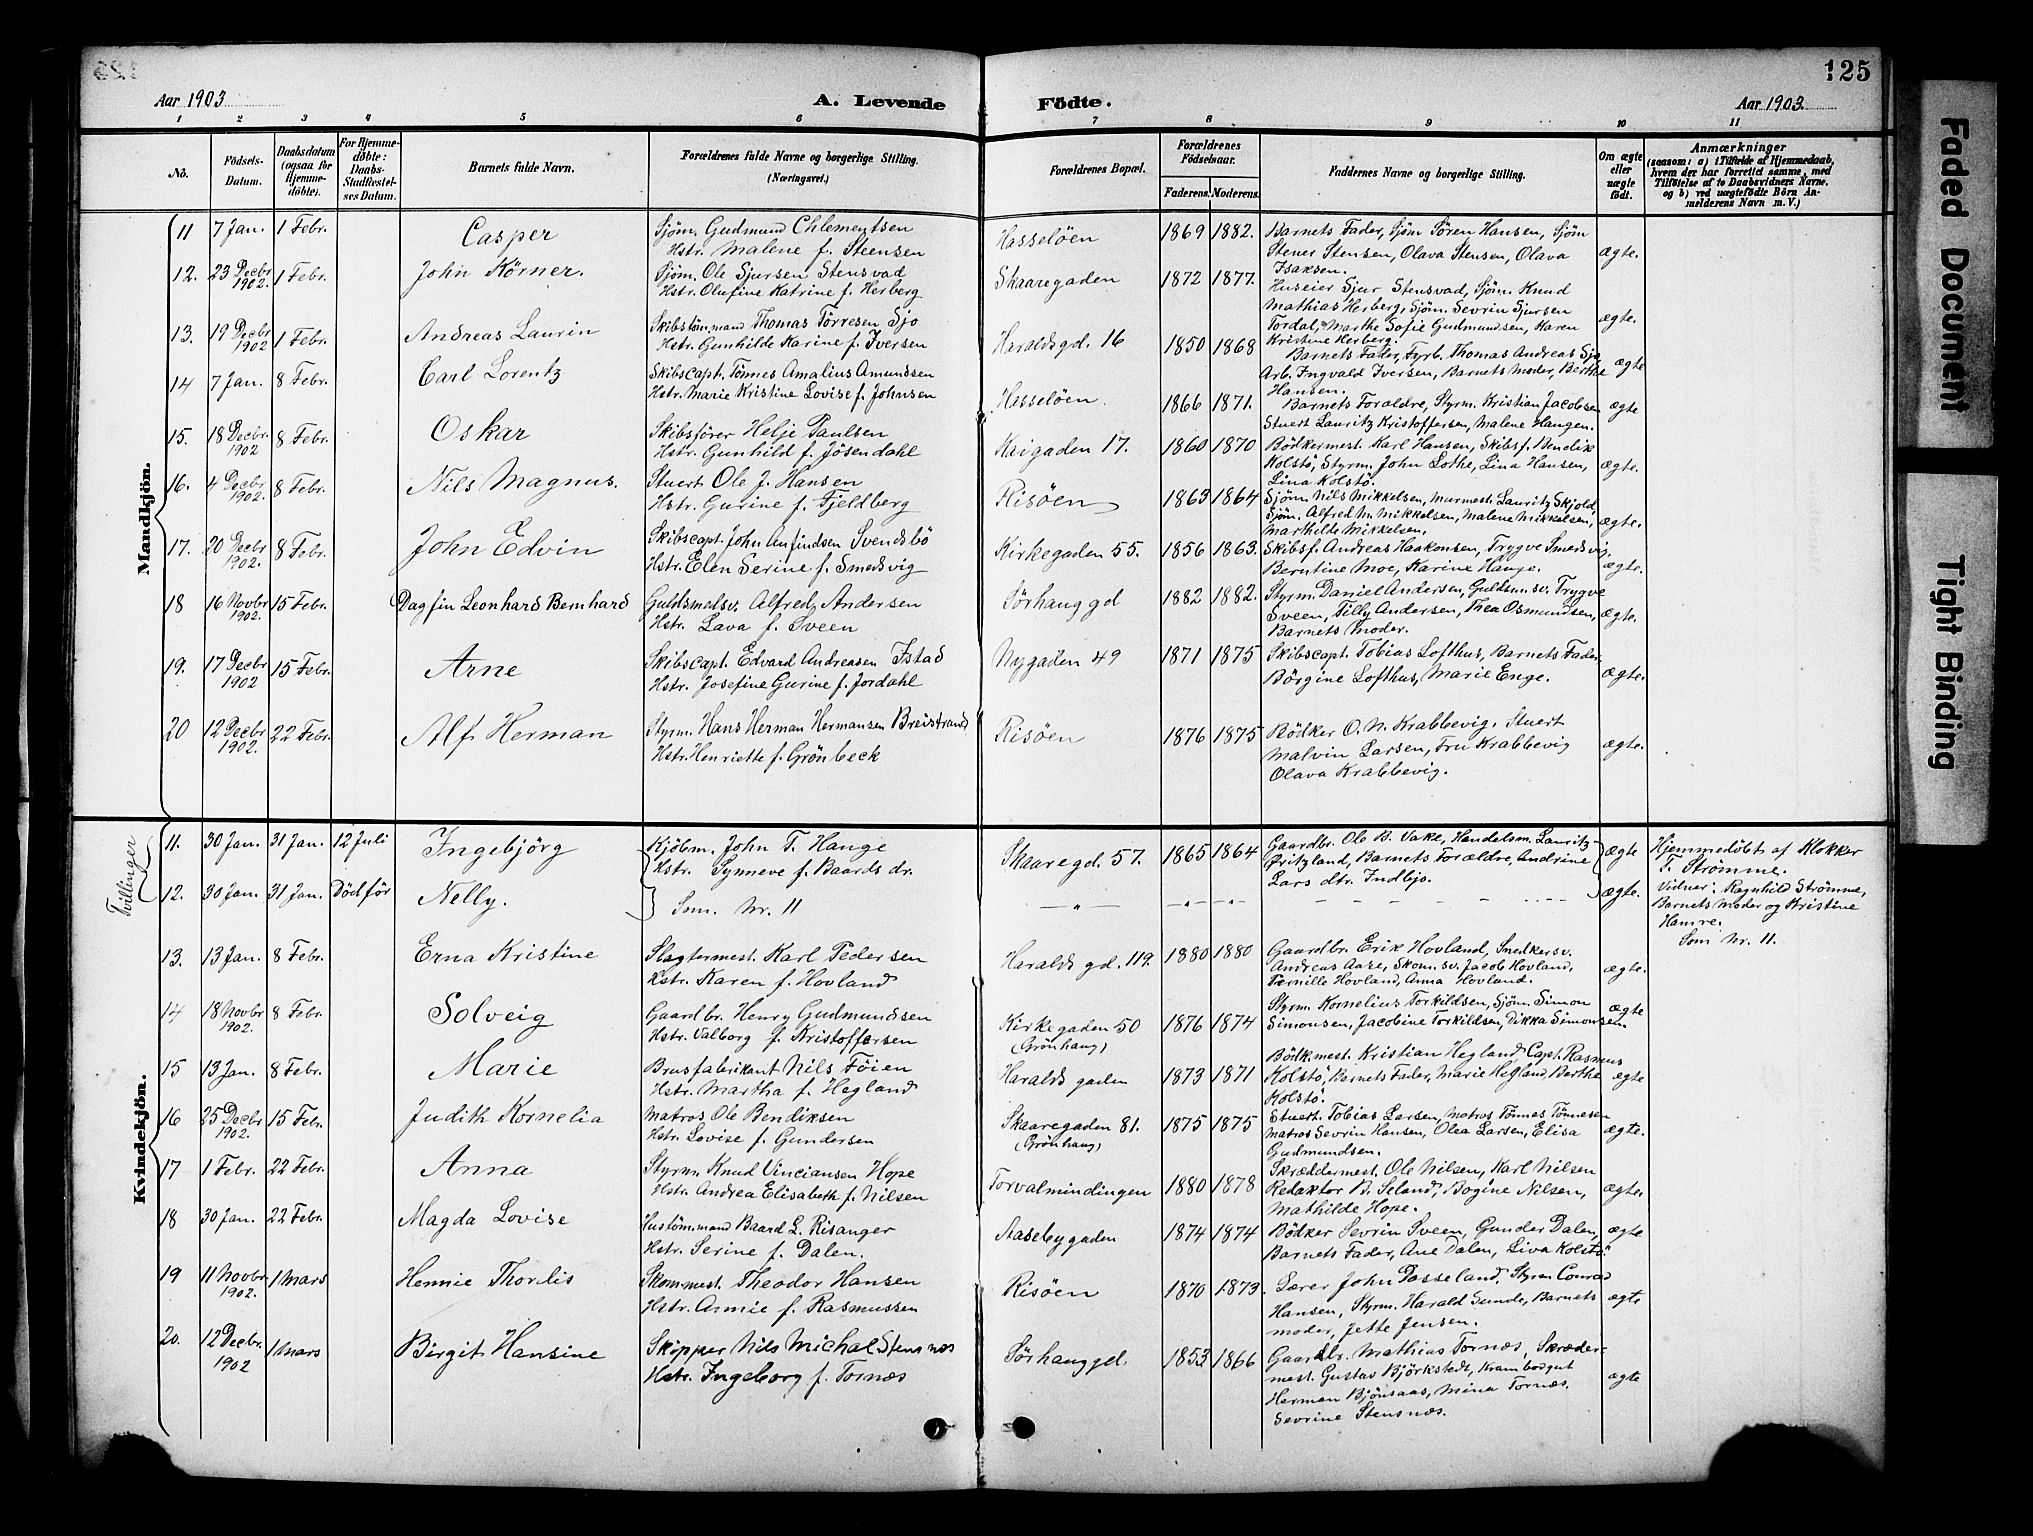 125
Aar 1903
A. Levende Födte.
Aar 1903
1 2 3 4 5 6 7 8 9 10 11
No.
Födsels-Datum.
Daabsdatum (ogsaa for Hjemme-döbte).
For Hjemme-döbte: Daabs-Stadfæstel-ses Datum.
Barnets fulde Navn.
Forældrenes fulde Navne og borgerlige Stilling. (Næringsvei.)
Forældrenes Bopæl.
Forældrenes Födselsaar.
Faderens. Moderens.
Faddernes Navne og borgerlige Stilling.
Om ægte eller uægte födt.
Anmærkninger
(saasom: a) i Tilfælde af Hjemmedaab, hvem der har forrettet samme, med Tilföielse af to Daabsvidners Navne, og b) ved uægtefödte Börn An-melderens Navn m. V.)
Mandkjön.
11 7 Jan. 1 Febr. Casper Sjöm. Gudmund Chlementsen Hstr. Malene f. Steensen Hasseløen 1869 1882. Barnets Fader, Sjöm Sören Hansen, Sjöm Stener Stensen, Olava Stensen, Olava Isaksen. ægte.
12. 23 Decbr 1902. 1 Febr. John Körner. Sjöm. Ole Sjursen Stensvad Hstr. Olufine Katrine f. Herberg Skaaregaden 1872 1877. Huseier Sjur Stensvad, Sjöm. Knud Mathias Herberg, Sjöm. Sevrin Sjursen Tordal, Marthe Sofie Gudmundsen, Karen Kristine Herberg. ægte.
13. 19 Decbr 1902 1 Febr. Andreas Laurin Skibstömmand Thomas Törresen Sjo Hstr. Gunhilde Karine f. Iversen Haraldsgd. 16 1850 1868 Barnets Fader, Fyrb. Thomas Andreas Sjo, Arb. Ingvald Iversen, Barnets Moder, Berthe Hansen. ægte
14 7 Jan. 8 Febr. Carl Lorentz Skibscapt. Tönnes Amalius Amundsen Hstr. Marie Kristine Lovise f. Johnsen Hasseløen. 1866 1871. Barnets Forældre, Styrm. Kristian Jacobsen Stuert Lauritz Kristoffersen, Malene Haugen. ægte
15. 18 Decbr. 1902 8 Febr. Oskar Skibsförer Helje Paulsen Hstr. Gunhild f. Jösendahl Kaigaden 17. 1860 1870 Bödkermest. Karl Hansen, Skibsf. Bendik Kolstö, Styrm. John Lothe, Lina Hansen, Lina Kolstö. ægte.
16. 4 Decbr 1902. 8 Febr. Nils Magnus. Stuert Ole J. Hansen Hstr. Gurine f. Fjeldberg Risöen 1863 1864 Sjöm. Nils Mikkelsen, Murmest. Lauritz Skjold, Sjöm. Alfred M. Mikkelsen, Malene Mikkelsen, Marthilde Mikkelsen. ægte.
17. 20 Decbr 1902. 8 Febr. John Edvin Skibscapt. John Anfindsen Svendsbö Hstr. Elen Serine f. Smedsvig Kirkegaden 55. 1856 1863. Skibsf. Andreas Haakonsen, Trygve Smedsvig, Berntine Moe, Karine Hauge. ægte.
18 16 Novbr 1902. 15 Febr. Dagfin Leonhard Bernhard Guldsmedsv. Alfred Andersen Hstr. Lava f. Sveen Sörhauggd 1882 1882. Styrm. Daniel Andersen, Guldsm.sv. Trygve Sveen, Tilly Andersen, Thea Osmundsen, Barnets Moder. ægte.
19. 17 Decbr 1902 15 Febr. Arne Skibscapt. Edvard Andreasen Istad Hstr. Josefine Gurine f. Jordahl Nygaden 49 1871 1875 Skibscapt. Tobias Lofthus, Barnets Fader Börgine Lofthus, Marie Enge. ægte.
20 12 Decbr 1902. 22 Febr. Alf Herman Styrm. Hans Herman Hermansen Breistrand Hstr. Henriette f. Grönbeck Risöen 1876 1875 Bödker O. N. Krabbevig, Stuert Malvin Larsen, Fru Krabbevig Olava Krabbevig. ægte.
Kvindekjön.
Tvillinger
11. 30 Jan. 31 Jan. 12 Juli Ingebjörg Kjöbm. John T. Hauge Hstr. Synneve f. Baards dr. Skaaregd. 57. 1865 1864 Gaardbr. Ole B. Vake, Handelsm. Lauritz Öritzland, Barnets Forældre, Andrine Lars dtr. Indbjo. ægte Hjemmedöbt af Klokker T. Strömme. Vidner: Ragnhild Strömme, Barnets Moder og Kristine Hamre.
12. 30 Jan. 31 Jan. Död för Nelly. Som Nr. 11 — „ — — „ — — „ — ægte. Som Nr. 11.
13. 13 Jan. 8 Febr. Erna Kristine Slagtermest. Karl Pedersen Hstr. Karen f. Hovland Haralds gd. 119. 1880 1880 Gaardbr. Erik Hovland, Snedkersv. Andreas Aase, Skom.sv. Jacob Hovland, Pernille Hovland, Anna Hovland. ægte.
14 18 Novbr 1902. 8 Febr. Solveig Gaardbr. Henry Gudmundsen Hstr. Valborg f. Kristoffersen Kirkegaden 50 (Grönhaug) 1876 1874 Styrm. Kornelius Torkildsen, Sjöm. Simon Simonsen, Jacobine Torkildsen, Dikka Simonsen. ægte
15 13 Jan. 8 Febr. Marie Brusfabrikant Nils Föien Hstr. Martha f. Hegland Haralds gaden 1873 1871 Bödk.mest. Kristian Hegland, Capt. Rasmus Kolstö, Barnets Fader, Marie Hegland, Berthe Kolstö. ægte
16 25 Decbr 1902. 15 Febr. Judith Kornelia Matros Ole Bendiksen Hstr. Lovise f. Gundersen Skaaregaden 81. (Grönhaug) 1875 1875 Stuert. Tobias Larsen, Matros Tönnes Tönnesen Matros Sevrin Hansen, Olea Larsen, Elisa Gudmundsen. ægte.
17 1 Febr. 22 Febr. Anna Styrm. Knud Vinciansen Hope Hstr. Andrea Elisabeth f. Nilsen Torvalmindingen 1880 1878 Skræddermest. Ole Nilsen, Karl Nilsen Redaktor B. Seland, Bogine Nilsen, Mathilde Hope. ægte.
18 30 Jan. 22 Febr. Magda Lovise Hustömmand Baard L. Risanger Hstr. Serine f. Dalen. Aasebygaden 1874 1874 Bödker Sevrin Sveen, Gunder Dalen, Barnets Fader, Ane Dalen, Liva Kolstö. ægte
19 11 Novbr 1902. 1 Mars Hennie Thordis Skommest. Theodor Hansen Hstr. Annie f. Rasmussen Risöen 1870 1873. Lærer John Dosseland, Styrm Conrad Hansen, Styrm. Harald Sunde, Barnets Moder, Jette Jensen. ægte
20. 12 Decbr. 1902 1 Mars Birgit Hansine Skipper Nils Michal Stensnæs Hstr. Ingeborg f. Tornæs Sörhauggd. 1853 1866 Gaardbr. Mathias Tornæs, Skræder-mest. Gustav Björkstedt, Krambodgut Herman Björnsaas, Mina Tornæs, Sevrine Stensnæs. ægte
Faded Document
Tight Binding